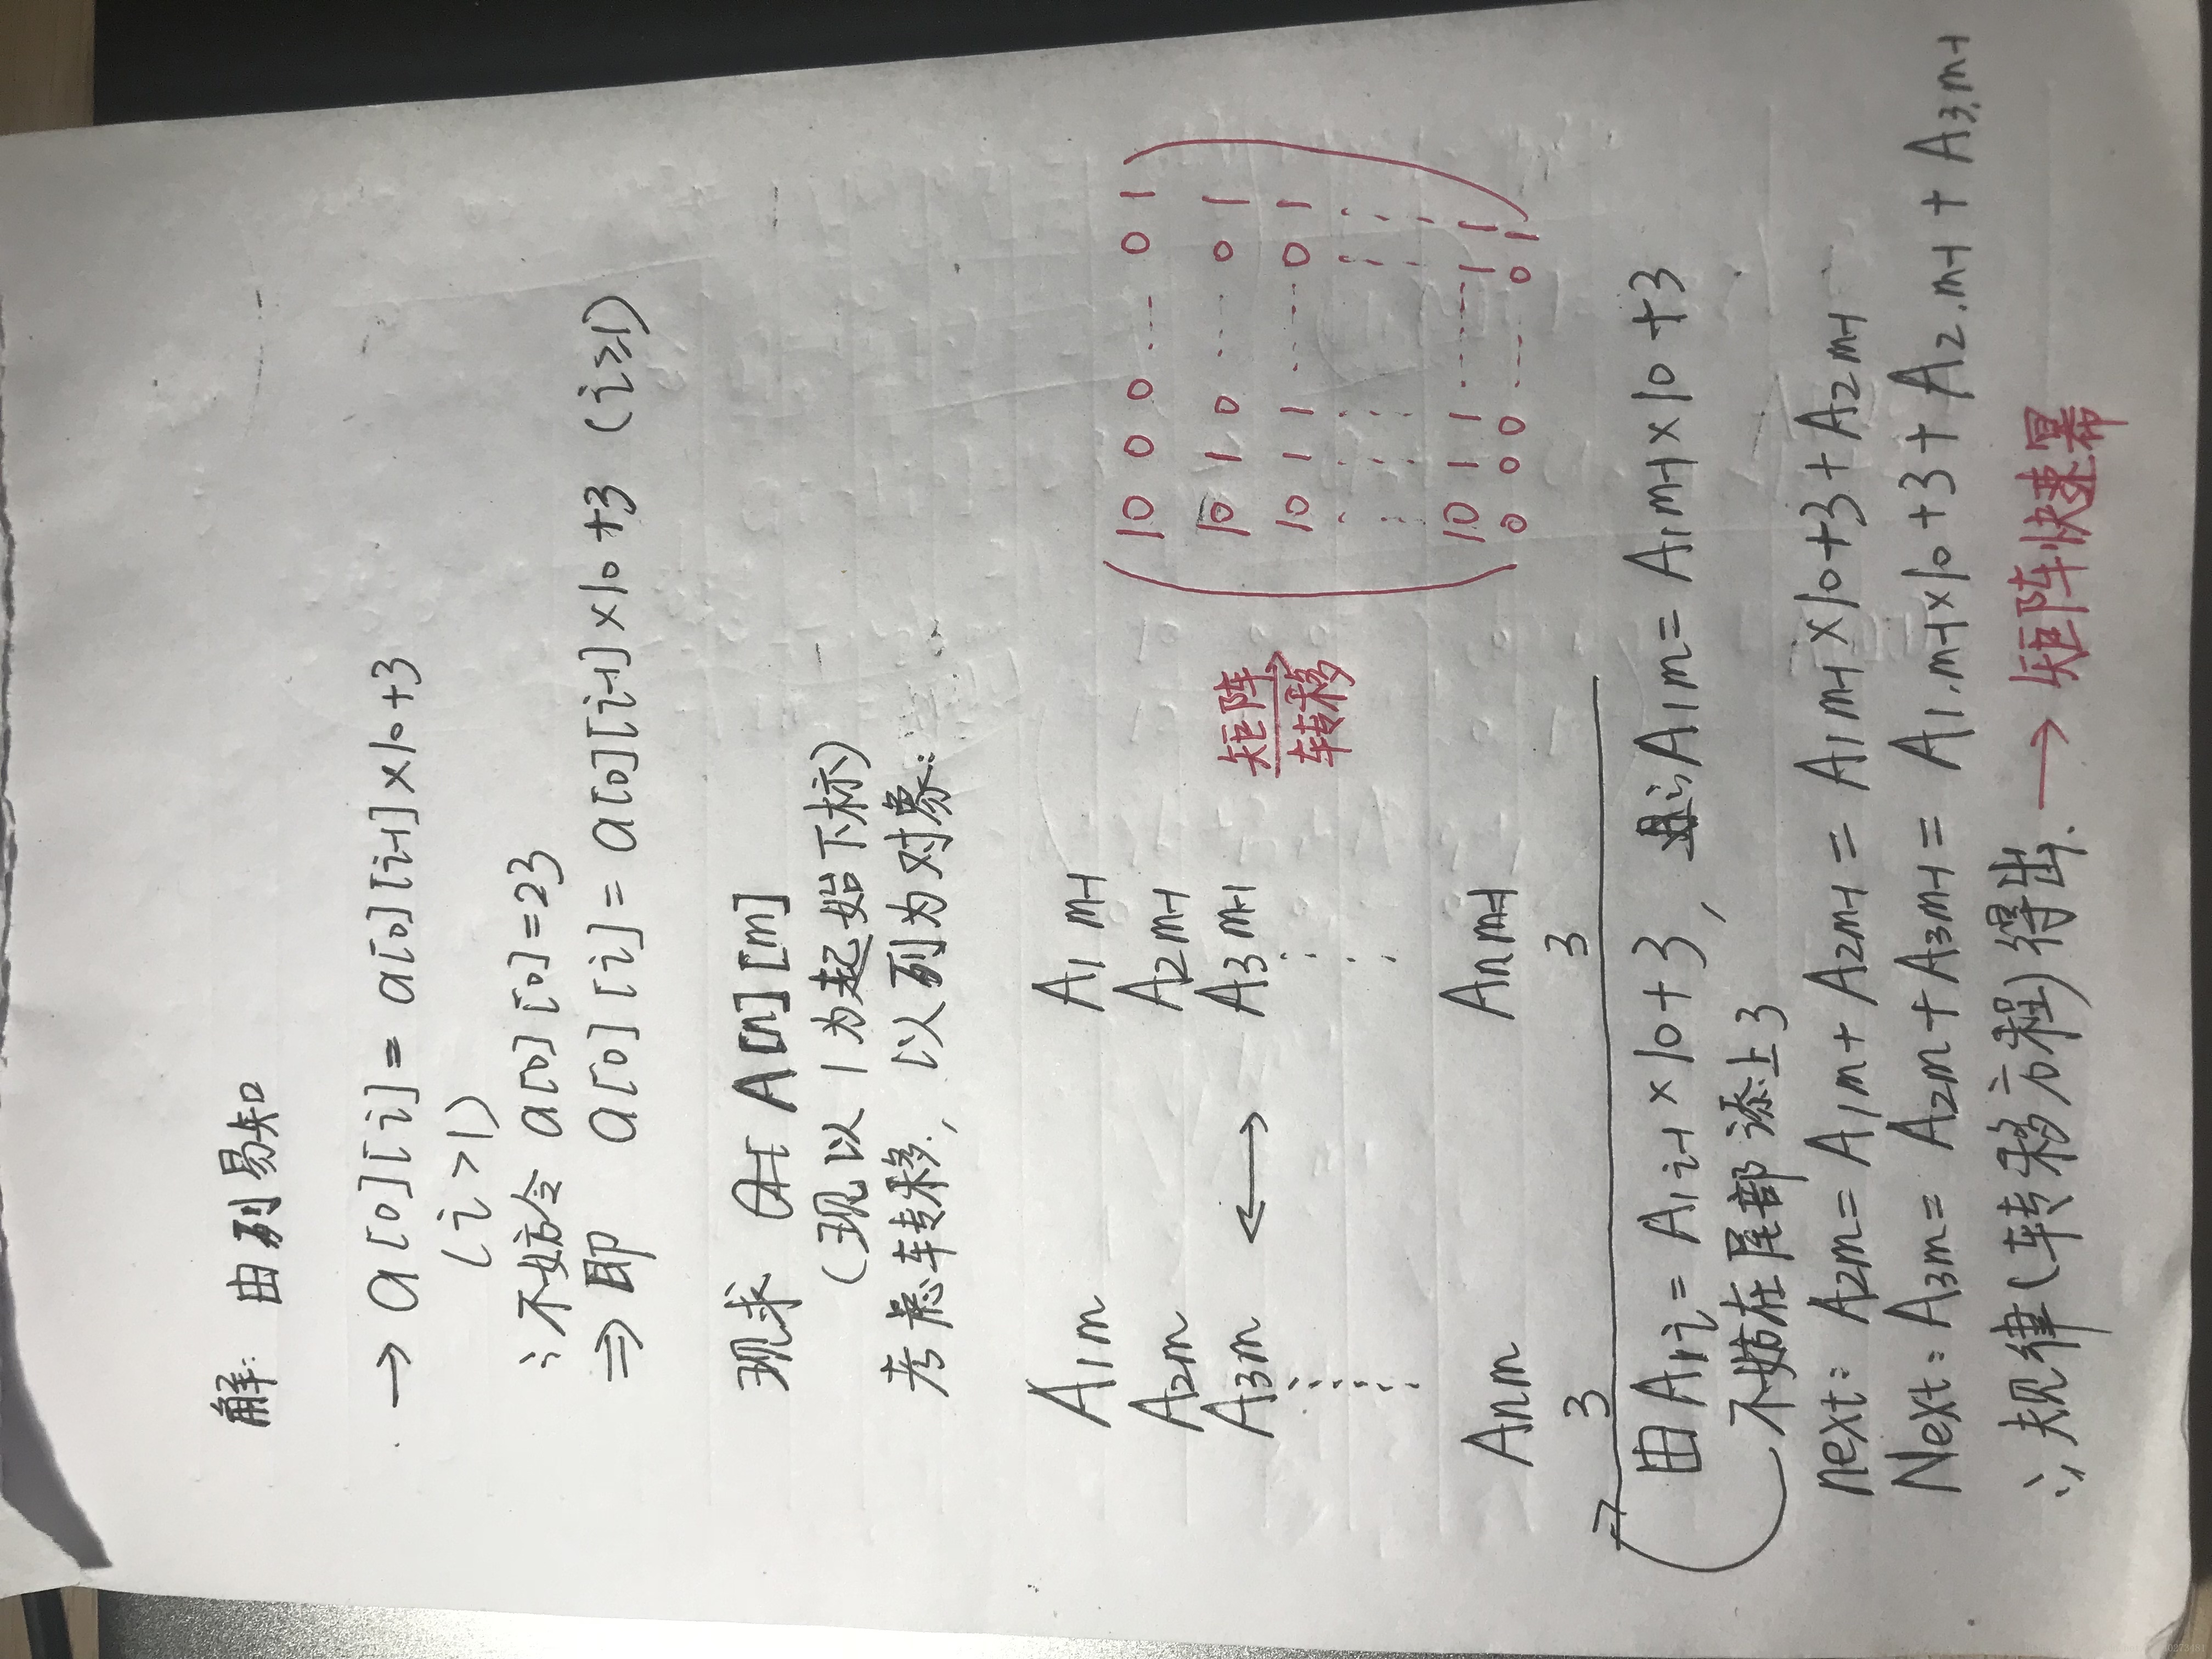 解: 由列易知
→ a[0][i] = a[0][i-1]×10+3
(i>1)
∴不妨令 a[0][0]=23
⇒ 即 a[0][i] = a[0][i-1]×10+3 (i≥1)
现求 A[n][m]
(现以1为起始下标)
考虑转移, 以列为对象:
A1m A1 m-1
A2m A2m-1
A3m ⟷ A3 m-1
Anm An m-1
3 3
矩阵
转移
10 0 0 .... 0 1
10 1 0 .... 0 1
10 1 1 ...... 0 1
10 1 1 ....... 1 1
0 0 0 .... 0 1
由A1i = A1i-1 × 10 + 3, ∴A1m = A1m-1 × 10 + 3
不妨在尾部添上3
next: A2m = A1m + A2m-1 = A1m-1 × 10 + 3 + A2m-1
Next: A3m = A2m + A3m-1 = A1.m-1×10 + 3 + A2.m-1 + A3.m-1
∴规律(转移方程)得出. → 矩阵快速幂